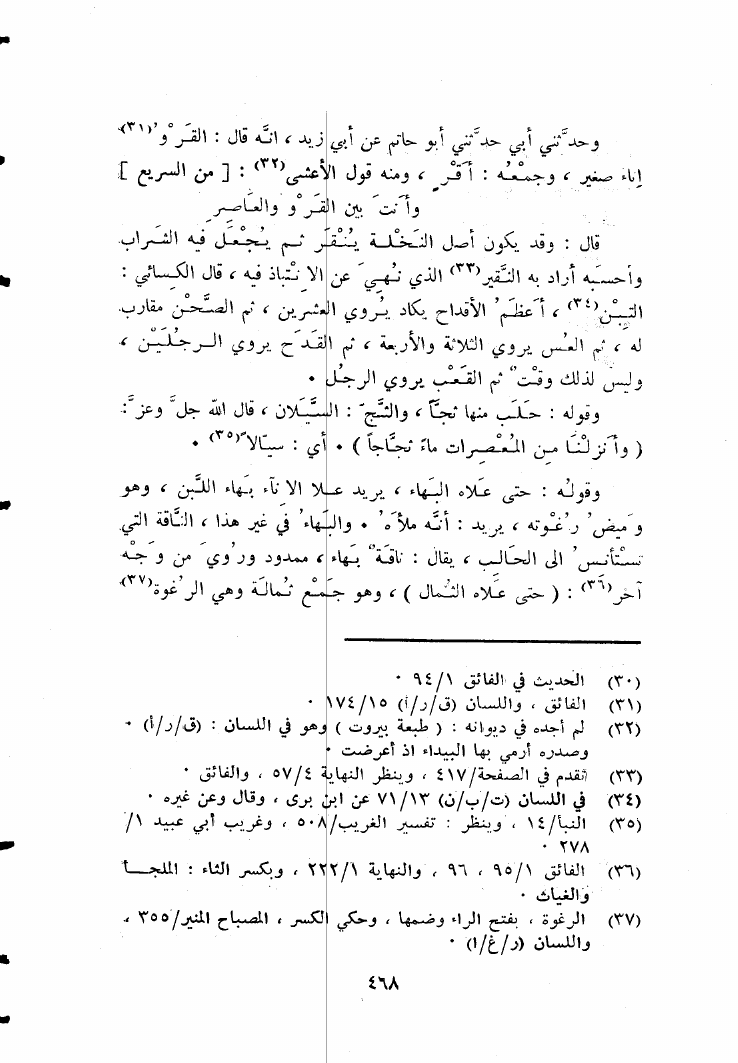 وحدَّثني أبي حدَّثني أبو حاتم عن أبي زيد ، انَّه قال : القَرْوُ(٣١)
إناء صغير ، وجمْعُه : أَقْرٍ ، ومنه قول الأَعشى(٣٢) : [ من السريع ]
وأَنتَ بين القَرْوِ والعَاصِرِ
قال : وقد يكون أصل النَخْلَة يُنْقَر ثم يُجْعَل فيه الشَراب
وأحسبَه أراد به النَّقير(٣٣) الذي نُهيَ عن الانْتِباذ فيه ، قال الكسائي :
التِبْن(٣٤) ، أَعظَمُ الأقداح يكاد يُروي العشرين ، ثم الصَّحْن مقارب
له ، ثم العُس يروي الثلاثة والأربعة ، ثم القَدَح يروي الرجلَيْن ،
وليسَ لذلك وقتْ ثم القَعْب يروي الرجُل .
وقوله : حلَب منها ثجَّاً ، والثَّجّ : السَّيَلان ، قال الله جلَّ وعزَّ :
( وأَنزلْنَا من المُعْصِرات ماءً ثجَّاجاً ) . أي : سيّالاً(٣٥) .
وقولُه : حتى عَلاه البَهاء ، يريد علا الاناءَ بَهاء اللَّبن ، وهو
وَميضُ رُغْوته ، يريد : أنَّه ملأَه . والبَهاءُ في غير هذا ، النَّاقة التي
تستْأنسُ الى الحَالب ، يقال : ناقَةٌ بَهاء ، ممدود ورُويَ من وَجْه
آخر(٣٦) : ( حتى عَلاه الثُمال ) ، وهو جَمْع ثُمالَة وهي الرُغوة(٣٧)
(٣٠) الحديث في الفائق ٩٤/١ .
(٣١) الفائق ، واللسان (ق/ر/أ) ١٧٤/١٥ .
(٣٢) لم أجده في ديوانه : ( طبعة بيروت ) وهو في اللسان : (ق/ر/أ) .
وصدره أرمي بها البيداء اذ أعرضت .
(٣٣) تقدم في الصفحة/٤١٧ ، وينظر النهاية ٥٧/٤ ، والفائق .
(٣٤) في اللسان (ت/ب/ن) ٧١/١٣ عن ابن برى ، وقال وعن غيره .
(٣٥) النبأ/١٤ ، وينظر : تفسير الغريب/٥٠٨ ، وغريب أبي عبيد ١/
٢٧٨ .
(٣٦) الفائق ٩٥/١ ، ٩٦ ، والنهاية ٢٢٢/١ ، وبكسر الثاء : الملجأ
والغياث .
(٣٧) الرغوة ، بفتح الراء وضمها ، وحكي الكسر ، المصباح المنير/٣٥٥ ،
واللسان (ر/غ/ا) .
٤٦٨